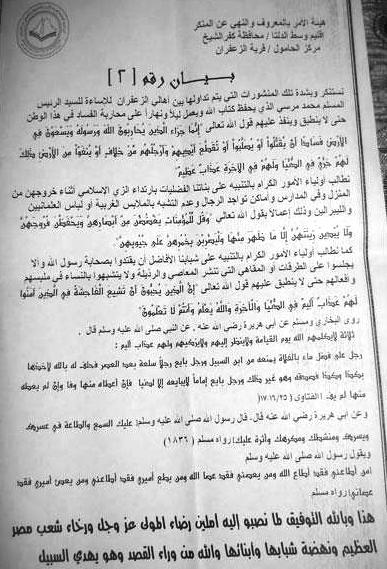 هيئة الأمر بالمعروف والنهى عن المنكر
إقليم وسط الدلتا / محافظة كفر الشيخ
مركز الحامول / قرية الزعفران
بيان رقم [ ٢ ]
نستنكر وبشدة تلك المنشورات التى يتم تداولها بين أهالى الزعفران للإساءة للسيد الرئيس
المسلم محمد مرسي الذي يحفظ كتاب الله ويصل ليلاً ونهاراً على محاربة الفساد فى هذا الوطن
حتى لا ينطبق وينفذ عليهم قول الله تعالى "إنَّمَا جَزَاء الَّذِينَ يُحَارِبُونَ اللّهَ وَرَسُولَهُ وَيَسْعَوْنَ فِي
الأَرْضِ فَسَادًا أَن يُقَتَّلُواْ أَوْ يُصَلَّبُواْ أَوْ تُقَطَّعَ أَيْدِيهِمْ وَأَرْجُلُهُم مِّنْ خِلافٍ أَوْ يُنفَوْاْ مِنَ الأَرْضِ ذَلِكَ
لَهُمْ خِزْيٌ فِي الدُّنْيَا وَلَهُمْ فِي الآخِرَةِ عَذَابٌ عَظِيمٌ"
نطالب أولياء الأمور الكرام بالتنبيه على بناتنا الفضليات بارتداء الزي الإسلامي أثناء خروجهن من
المنزل وفى المدارس وأماكن تواجد الرجال وعدم التشبه بالملابس الغربية أو لباس العلمانيين
والليبرالين وذلك إعمالا بقول الله تعالى "وَقُل لِّلْمُؤْمِنَاتِ يَغْضُضْنَ مِنْ أَبْصَارِهِنَّ وَيَحْفَظْنَ فُرُوجَهُنَّ
وَلَا يُبْدِينَ زِينَتَهُنَّ إِلَّا مَا ظَهَرَ مِنْهَا وَلْيَضْرِبْنَ بِخُمُرِهِنَّ عَلَى جُيُوبِهِنَّ"
كما نطالب أولياء الأمور الكرام بالتنبيه على شبابنا الأفاضل أن يقتدوا بصحابة رسول الله وألا
يجلسوا على الطرقات أو المقاهى التى تنشر المعاصي والرذيلة ولا يتشبهوا بالنساء فى ملبسهم
وأفعالهم حتى لا ينطبق عليهم قول الله تعالى "إِنَّ الَّذِينَ يُحِبُّونَ أَن تَشِيعَ الْفَاحِشَةُ فِي الَّذِينَ آمَنُوا
لَهُمْ عَذَابٌ أَلِيمٌ فِي الدُّنْيَا وَالْآخِرَةِ وَاللَّهُ يَعْلَمُ وَأَنتُمْ لَا تَعْلَمُونَ"
روى البخاري ومسلم عن أبى هريرة رضي الله عنه . عن النبي صلى الله عليه وسلم قال .
ثلاثة لا يكلمهم الله يوم القيامة ولا ينظر إليهم ولا يزكيهم ولهم عذاب أليم :
رجل على فضل ماء بالفلاة يمنعه من ابن السبيل ورجل بايع رجلا سلعة بعد العصر فحلف له بالله لأخذها
بكذا وكذا فصدقه وهو غير ذلك ورجل بايع إماماً لا يبايعه إلا لدنيا فإن أعطاه منها وفا وإن لم يعطه
منها لم يف . الفتاوى ( ١٧.١٦/٣٥ )
وعن أبى هريرة رضي الله عنه قال - قال رسول الله صلى الله عليه وسلم: عليك السمع والطاعة في عسرك
ويسرك ومنشطك ومكرهك وأثرة عليك: رواه مسلم ( ١٨٣٦ )
ويقول رسول الله صلى الله عليه وسلم
:من أطاعني فقد أطاع الله ومن يعصني فقد عصا الله ومن يطع أميري فقد أطاعني ومن يعص أميري فقد
عصاني: رواه مسلم
هذا وبالله التوفيق لما نصبو إليه أملين رضاء المولى عز وجل ورخاء شعب مصر
العظيم ونهضة شبابها وأبنائها والله من وراء القصد وهو يهدي السبيل